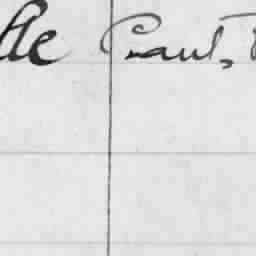 lle Paul,